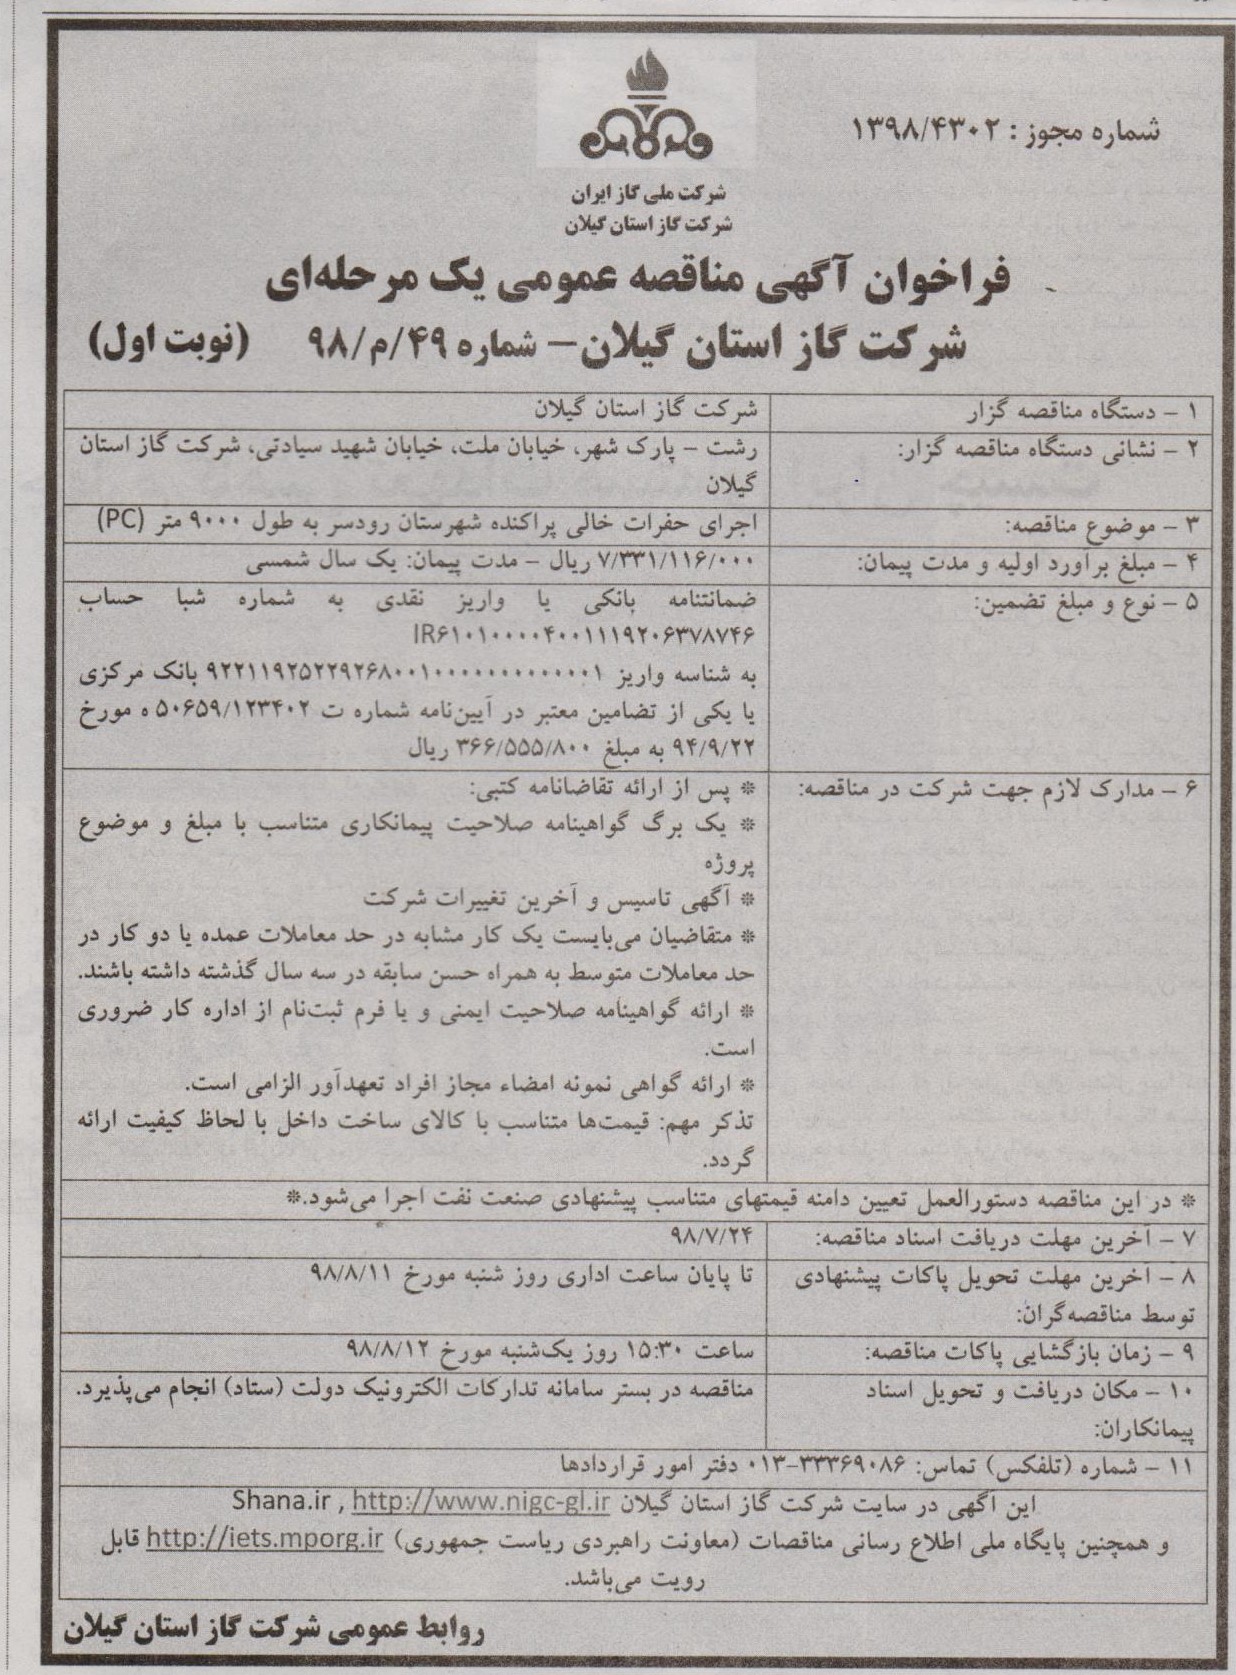 شماره مجوز : ۱۳۹۸/۴۳۰۲
شرکت ملی گاز ایران
شرکت گاز استان گیلان
فراخوان آگهی مناقصه عمومی یک مرحله‌ای
شرکت گاز استان گیلان– شماره ۴۹/م/۹۸ (نوبت اول)
۱ – دستگاه مناقصه گزار
شرکت گاز استان گیلان
۲ – نشانی دستگاه مناقصه گزار:
رشت – پارک شهر، خیابان ملت، خیابان شهید سیادتی، شرکت گاز استان
گیلان
۳ – موضوع مناقصه:
اجرای حفرات خالی پراکنده شهرستان رودسر به طول ۹۰۰۰ متر (PC)
۴ – مبلغ برآورد اولیه و مدت پیمان:
۷/۳۳۱/۱۱۶/۰۰۰ ریال – مدت پیمان: یک سال شمسی
۵ – نوع و مبلغ تضمین:
ضمانتنامه بانکی یا واریز نقدی به شماره شبا حساب
IR۶۱۰۱۰۰۰۰۴۰۰۱۱۱۹۲۰۶۳۷۸۷۴۶
به شناسه واریز ۹۲۲۱۱۹۲۵۲۲۹۲۶۸۰۰۱۰۰۰۰۰۰۰۰۰۰۰۰۰۱ بانک مرکزی
یا یکی از تضامین معتبر در آیین‌نامه شماره ت ۵۰۶۵۹/۱۲۳۴۰۲ ه مورخ
۹۴/۹/۲۲ به مبلغ ۳۶۶/۵۵۵/۸۰۰ ریال
۶ – مدارک لازم جهت شرکت در مناقصه:
* پس از ارائه تقاضانامه کتبی:
* یک برگ گواهینامه صلاحیت پیمانکاری متناسب با مبلغ و موضوع
پروژه
* آگهی تاسیس و آخرین تغییرات شرکت
* متقاضیان می‌بایست یک کار مشابه در حد معاملات عمده یا دو کار در
حد معاملات متوسط به همراه حسن سابقه در سه سال گذشته داشته باشند.
* ارائه گواهینامه صلاحیت ایمنی و یا فرم ثبت‌نام از اداره کار ضروری
است.
* ارائه گواهی نمونه امضاء مجاز افراد تعهدآور الزامی است.
تذکر مهم: قیمت‌ها متناسب با کالای ساخت داخل با لحاظ کیفیت ارائه
گردد.
* در این مناقصه دستورالعمل تعیین دامنه قیمتهای متناسب پیشنهادی صنعت نفت اجرا می‌شود.*
۷ – آخرین مهلت دریافت اسناد مناقصه:
۹۸/۷/۲۴
۸ – آخرین مهلت تحویل پاکات پیشنهادی
توسط مناقصه‌گران:
تا پایان ساعت اداری روز شنبه مورخ ۹۸/۸/۱۱
۹ – زمان بازگشایی پاکات مناقصه:
ساعت ۱۵:۳۰ روز یک‌شنبه مورخ ۹۸/۸/۱۲
۱۰ – مکان دریافت و تحویل اسناد
پیمانکاران:
مناقصه در بستر سامانه تدارکات الکترونیک دولت (ستاد) انجام می‌پذیرد.
۱۱ – شماره (تلفکس) تماس: ۳۳۳۶۹۰۸۶–۰۱۳ دفتر امور قراردادها
این آگهی در سایت شرکت گاز استان گیلان Shana.ir , http://www.nigc-gl.ir
و همچنین پایگاه ملی اطلاع رسانی مناقصات (معاونت راهبردی ریاست جمهوری) http://iets.mporg.ir قابل
رویت می‌باشد.
روابط عمومی شرکت گاز استان گیلان